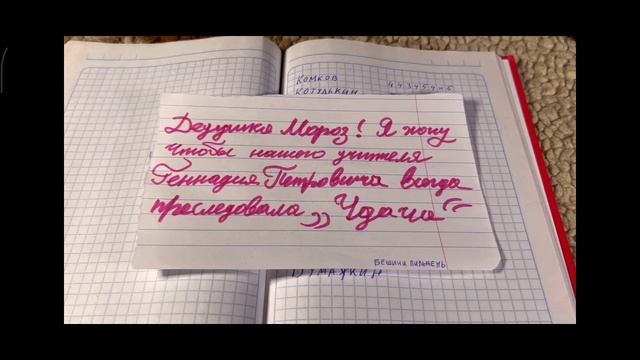 КОМКОВ 443454-5
КОТУЛЬКИН
Дедушка Мороз! Я хочу
чтобы нашего учителя
Геннадия Петровича всегда
преследовала „Удача“
БЕШИНИ ПИЛЬМЕНЬ
БУМАЖКИН